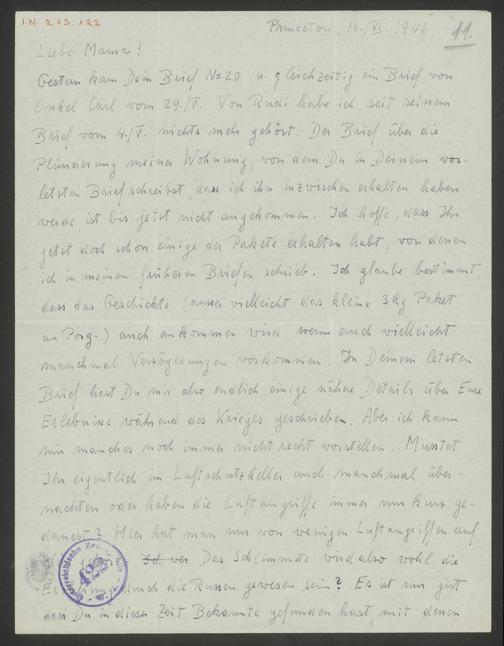 I.N. 213.122
Princeton, 16./VI. 1946
11.
Liebe Mama!
Gestern kam Dein Brief No 20 u. gleichzeitig ein Brief von
Onkel Carl vom 29./V. Von Rudi habe ich seit seinem
Brief vom 4./V. nichts mehr gehört. Der Brief über die
Plünderung meiner Wohnung, von dem Du in Deinem vor-
letzten Brief schreibst, dass ich ihn inzwischen erhalten haben
werde, ist bis jetzt nicht angekommen. Ich hoffe, dass Ihr
jetzt doch schon einige der Pakete erhalten habt, von denen
ich in meinen früheren Briefen schrieb. Ich glaube bestimmt,
dass das Geschickte (ausser vielleicht das kleine 3 kg Paket
an Porg.) auch ankommen wird wenn auch vielleicht
manchmal Verzögerungen vorkommen. In Deinem letzten
Brief hast Du mir also endlich einige nähere Details über Eure
Erlebnisse während des Krieges geschrieben. Aber ich kann
mir manches noch immer nicht recht vorstellen. Musstet
Ihr eigentlich im Luftschutzkeller auch manchmal über-
nachten oder haben die Luftangriffe immer nur kurz ge-
dauert? Hier hat man nur von wenigen Luftangriffen auf
Das Schlimmste wird also wohl die
durch die Russen gewesen sein? Es ist nur gut
dass Du in dieser Zeit Bekannte gefunden hast, mit denen